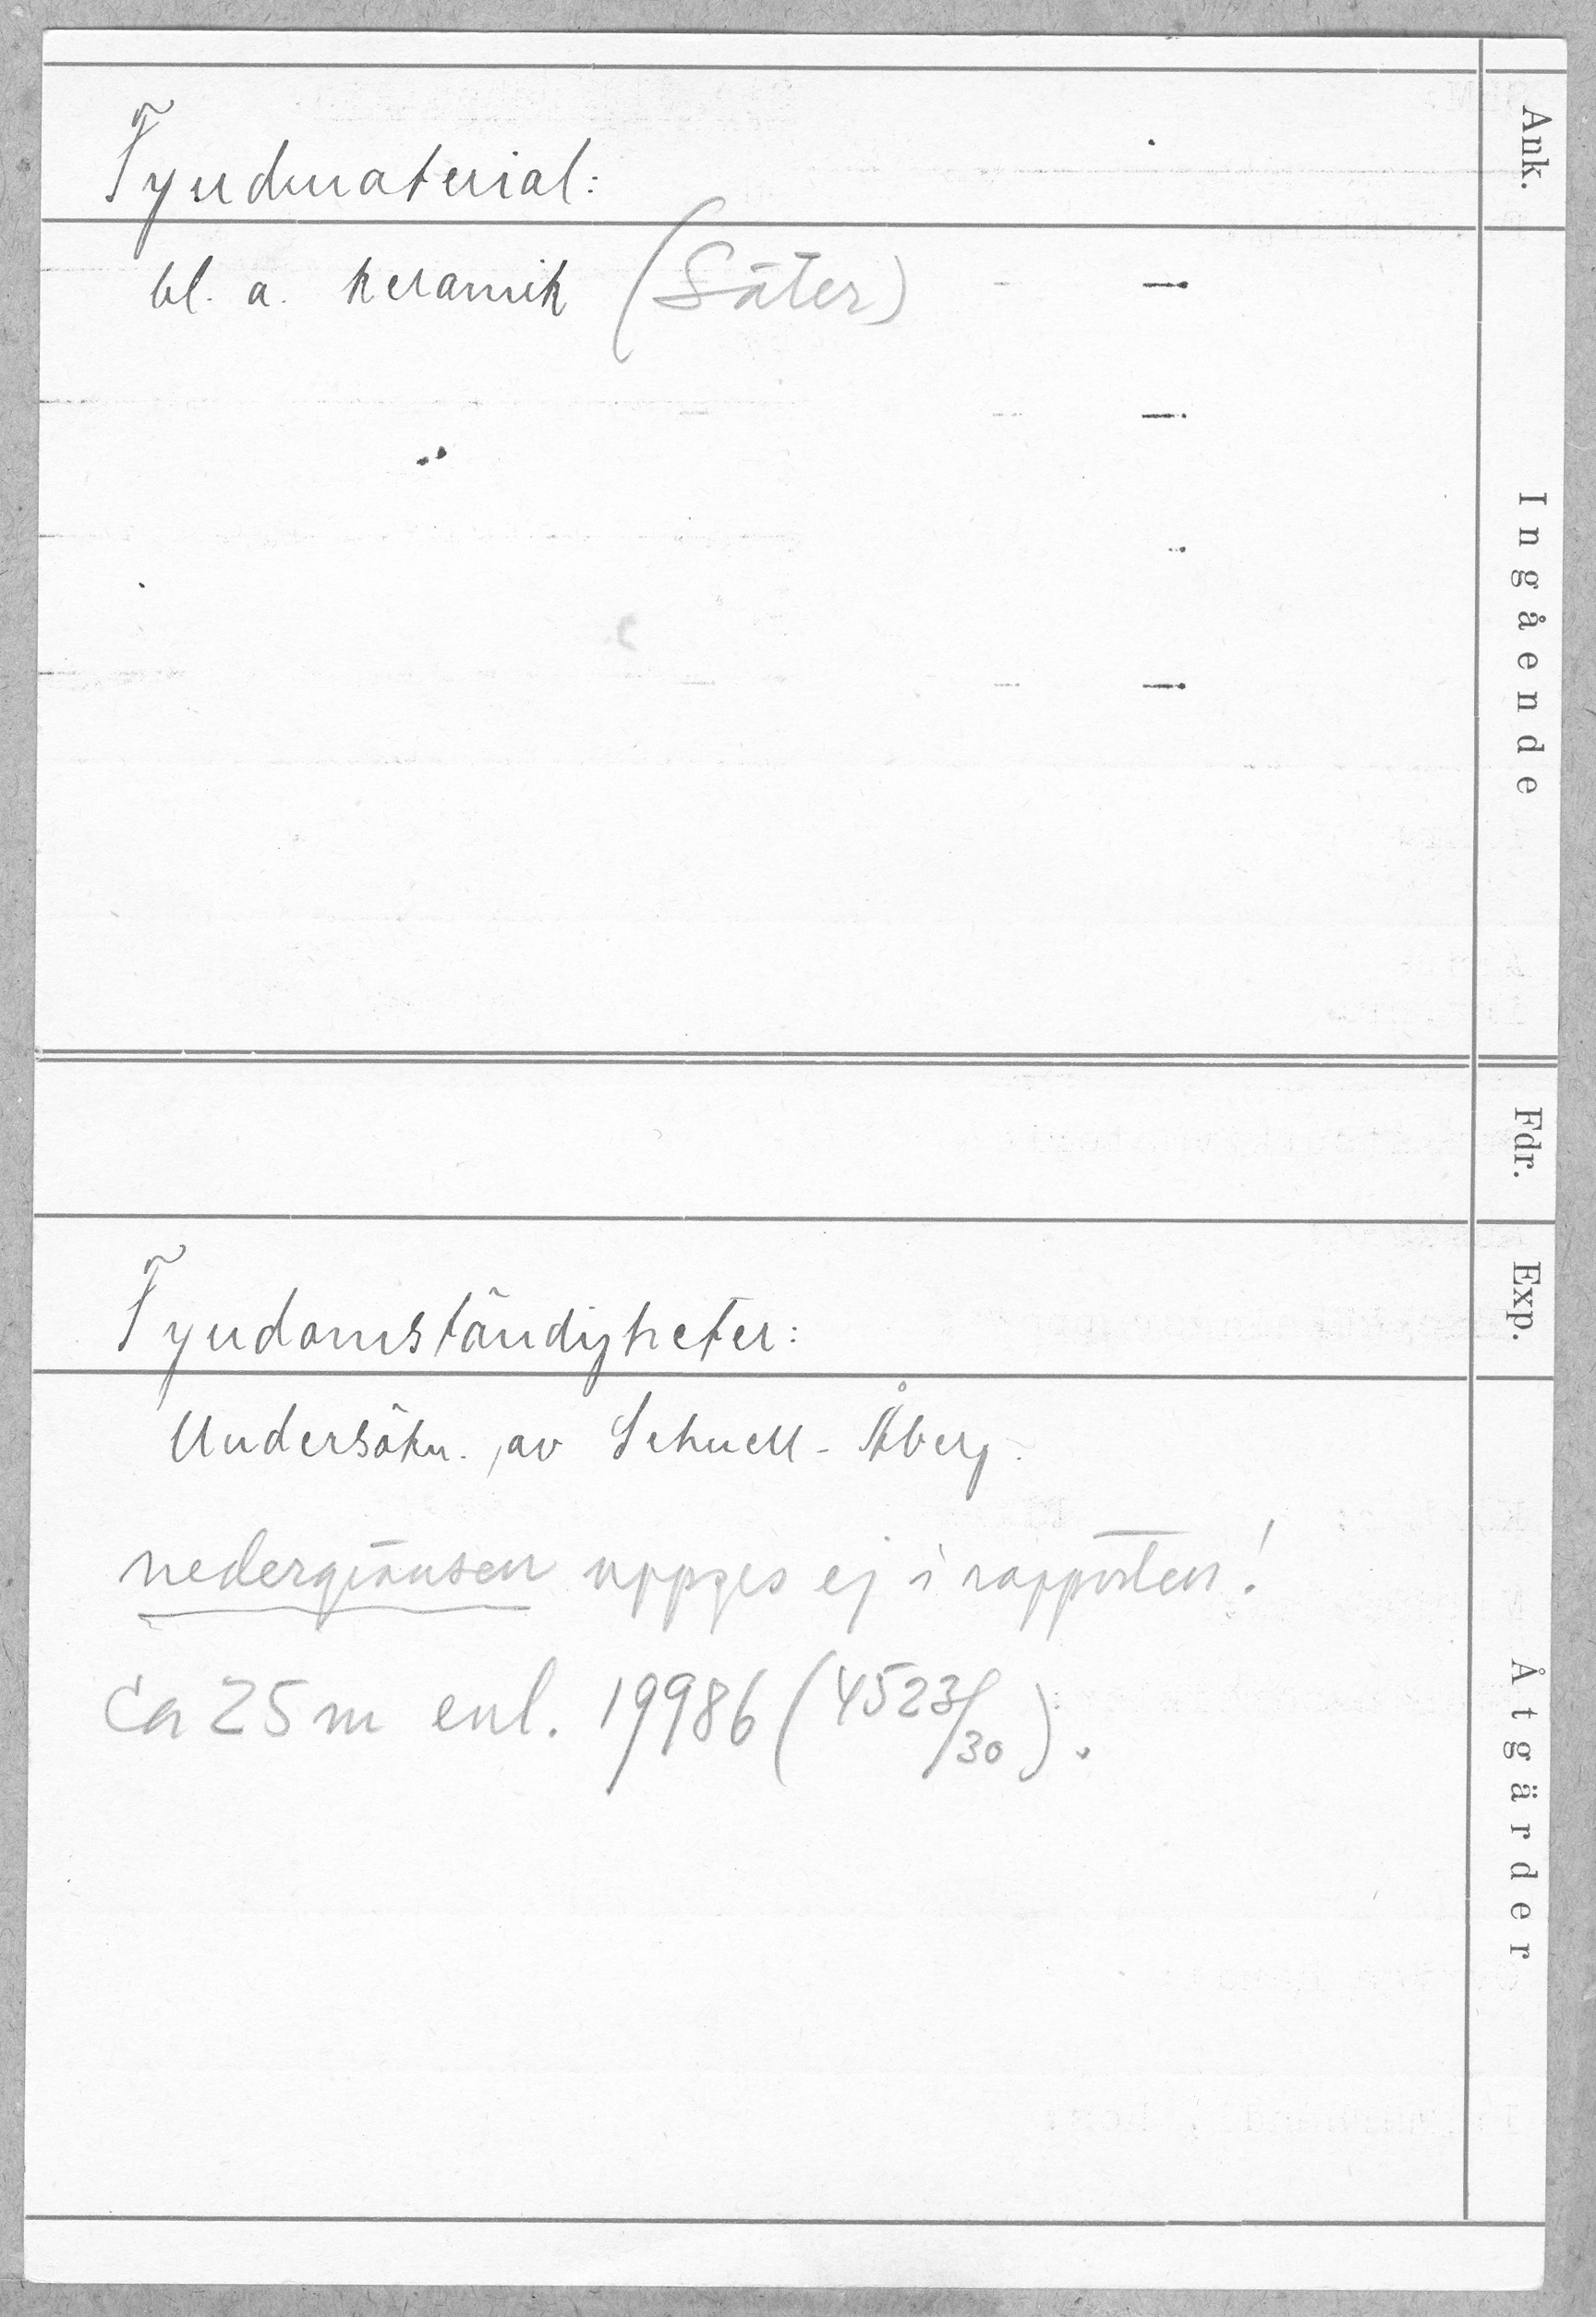 Ank.
Fyndmaterial:
bl. a. keramik (Säter)
Ingående
Fdr.
Exp.
Fyndomständigheter:
Undersökn. av Schnell-Åberg.
nedergränsen uppges ej i rapporten!
ca 25 m enl. 19986 (4523/30).
Åtgärder